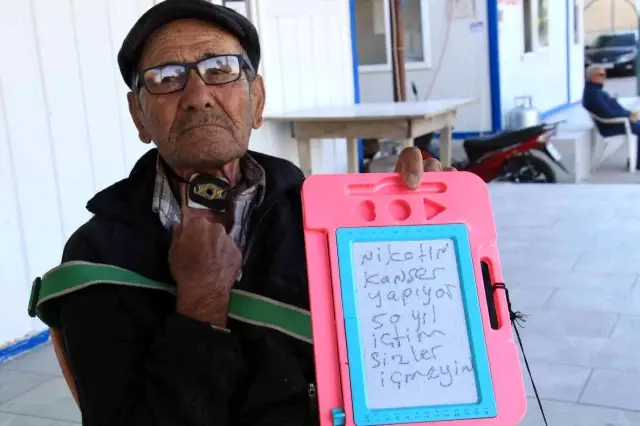 NİKOTİN
Kanser
yapıyor
50 yıl
içtim
Sizler
içmeyin